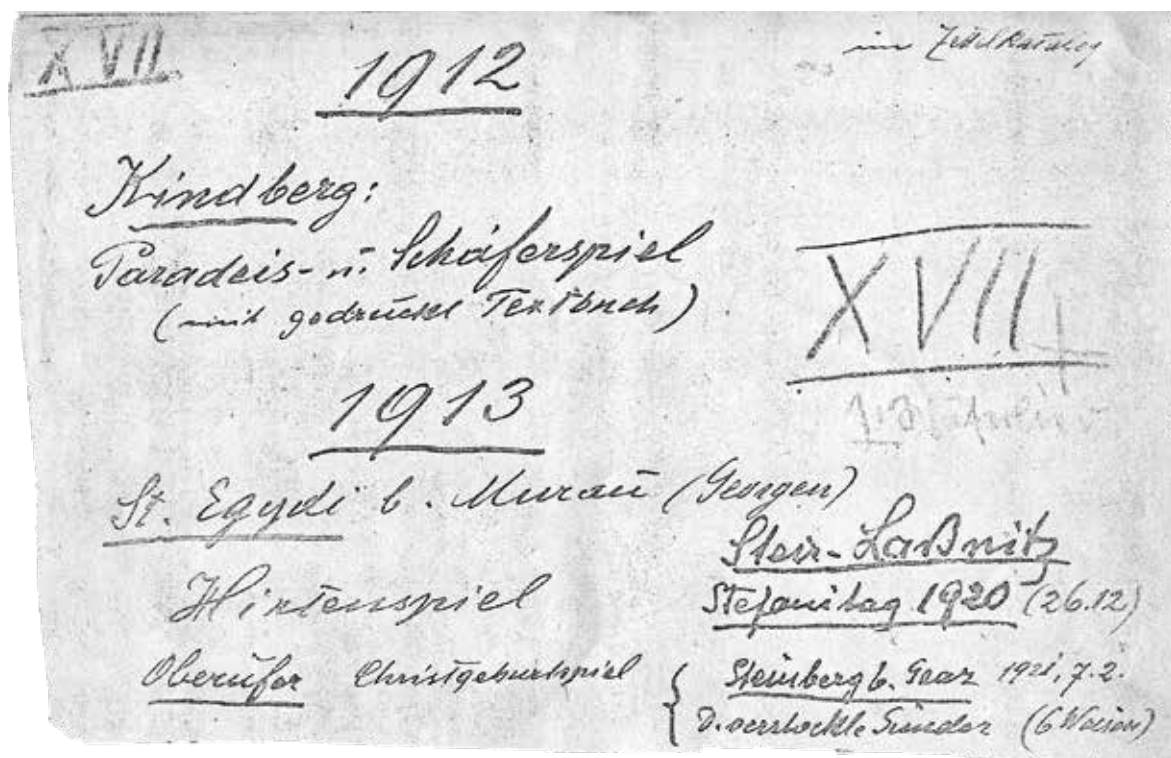 XVII
im Zettelkatalog
1912
Kindberg:
Paradeis- u. Schäferspiel
(mit gedruckt Textbuch)
XVII
1913
St. Egydi b. Murau (Georgen)
Hirtenspiel
Steir-Laßnitz
Stefanitag 1920 (26.12)
Oberufer Christgeburtspiel
{ Steinberg b. Graz 1921, 7.2.
D. verstockte Sünder (6 Weisen)